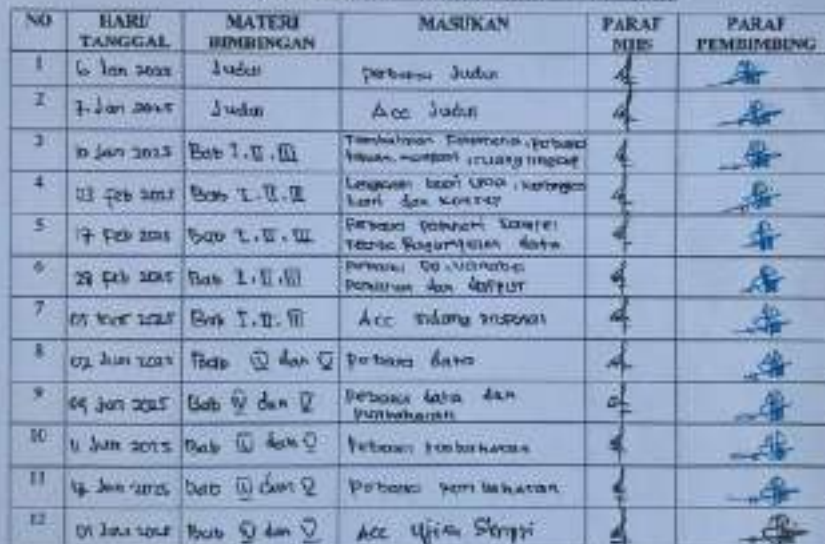 NO HARI/ TANGGAL MATERI BIMBINGAN MASUKAN PARAF MHS PARAF PEMBIMBING
1 6 Jan 2025 Judul perbaiki Judul
2 7 Jan 2025 Judul Acc Judul
3 10 Jan 2025 Bab I, II, III Tambahkan Fenomena, perbaiki
tujuan, manfaat, ruang lingkup
4 03 Feb 2025 Bab I, II, III teori, kerangka
teori dan konsep
5 17 Feb 2025 Bab I, II, III Perbaiki sampel
teknik Pengumpulan data
6 28 Feb 2025 Bab I, II, III Perbaiki DO, variabel
penelitian dan
7 2025 Bab I, II, III Acc sidang proposal
8 02 Jun 2025 Bab IV dan V Perbaiki data
9 Jun 2025 Bab IV dan V Perbaiki data dan
pembahasan
10 11 Jun 2025 Bab IV dan V Perbaiki pembahasan
11 Jun 2025 Bab IV dan V Perbaiki pembahasan
12 01 2025 Bab IV dan V Acc Ujian Skripsi